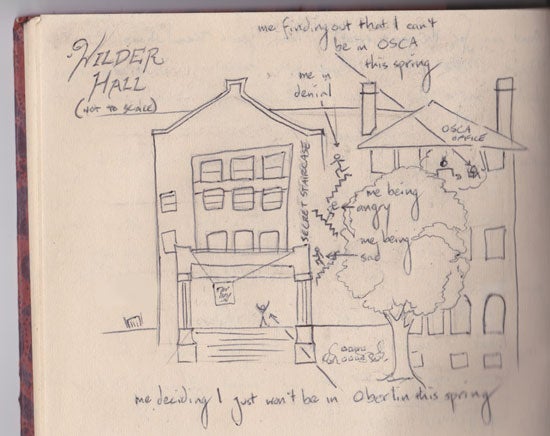 WILDER
HALL
(NOT TO SCALE)
me finding out that I can't
be in OSCA
this spring
me in
denial
OSCA
OFFICE
SECRET STAIRCASE
me being
angry
me being
sad
me deciding I just won't be in Oberlin this spring